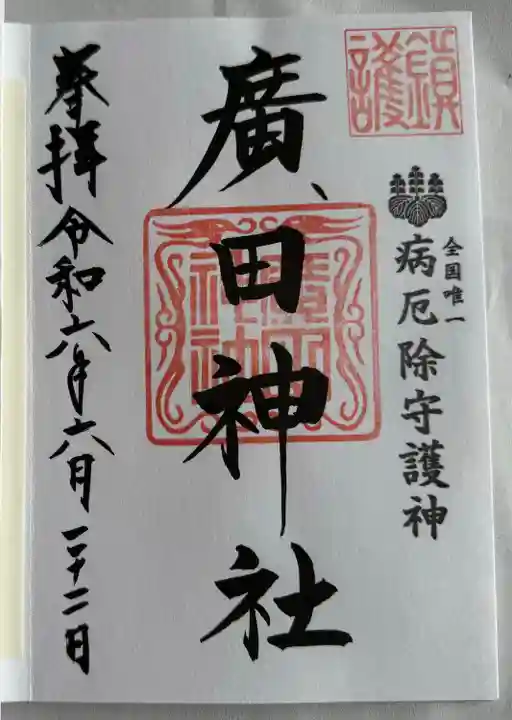 鎮護
全国唯一
病厄除守護神
廣田神社
廣田神社
奉拝 令和六年六月二十二日